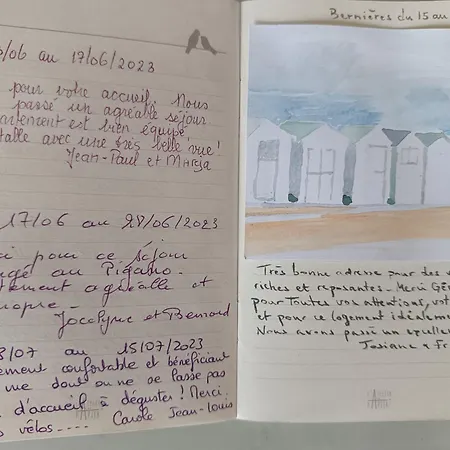 /06 au 17/06/2023
pour votre accueil. Nous
passé un agréable séjour
artement est bien équipé,
talle avec une très belle vue!
Jean-Paul et
17/06 au 28/06/2023
ci pour ce séjour
au
tement agréable et
propre.
Jocelyne et Bernard
8/07 au 15/07/2023
ement confortable et bénéficiant
ne vue dont on ne se lasse pas
d'accueil à déguster! Merci
s vélos....
Carole Jean-Louis
Bernières du 15 au
Très bonne adresse pour des v
riches et reposantes. Merci Gé
pour Toutes vos attentions, vot
et pour ce logement idéaleme
Nous avons passé un excelle
Josiane & Fr